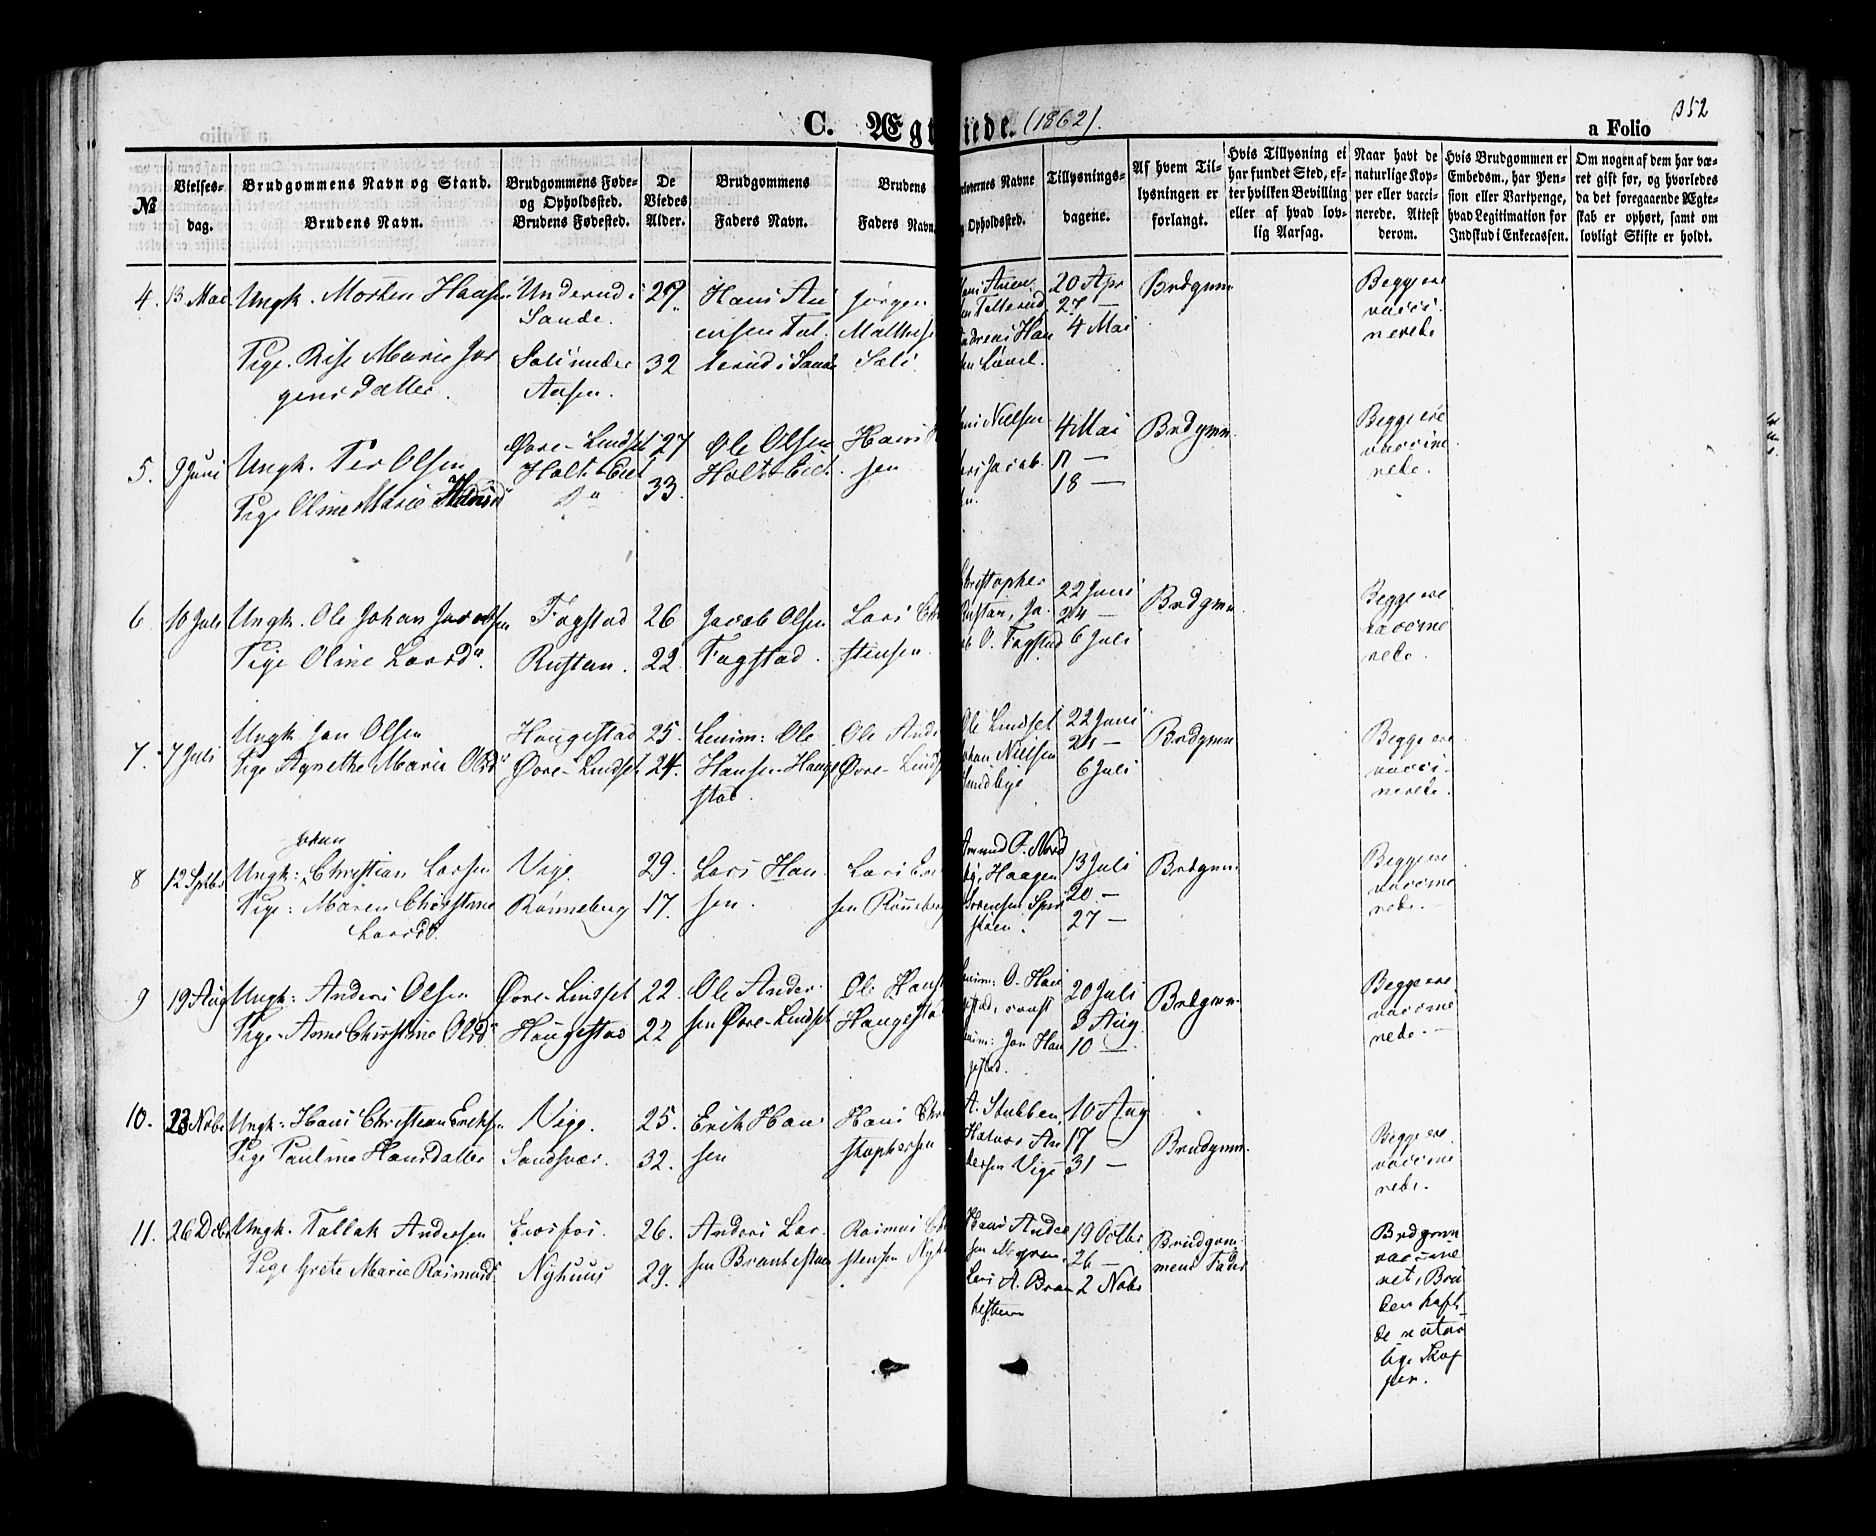 C. Ægt iede. (1862).
a Folio
352
№
Vielses-
dag.
Brudgommens Navn og Stand.
Brudens Navn.
Brudgommens Føde-
og Opholdssted.
Brudens Fødested.
De
Viedes
Alder.
Brudgommens
Faders Navn.
Brudens
Faders Navn.
orlovernes Navne
g Opholdssted.
Tillysnings-
dagene.
Af hvem Til-
lysningen er
forlangt.
Hvis Tillysning ei
har fundet Sted, ef-
ter hvilken Bevilling
eller af hvad lov-
lig Aarsag.
Naar havt de
naturlige Kop-
per eller vacci-
nerede. Attest
derom.
Hvis Brudgommen er
Embedsm., har Pen-
sion eller Vartpenge,
hvad Legitimation for
Indskud i Enkecassen.
Om nogen af dem har væ-
ret gift før, og hvorledes
da det foregaaende Ægte-
skab er ophørt, samt om
lovligt Skifte er holdt.
4. 13 Mai
Ungk. Morten Hansen
Pige. Rise Marie Jør
gensdatter.
Underud i
Sande.
Soli under
Aasen.
29
32
Hans An
ensen Tol
lerud i Sande
Jørgen
Mathise
Soli
20 Apr
27 —
4 Mai
Brdgmn
Begge ere
vacci
nerede
5. 9 Juni
Ungk. Per Olsen
Pige Oline Marie Hansd
Øvre-Lindset
Holt-Eiet
27
33
Ole Olsen
Holt-Eiet.
Hans
sen
ans Nielsen
ers Jacob
en.
4 Mai
11 —
18 —
Brdgmn.
Begge ere
vaccine
rede.
6 10 Juli
Ungk. Ole Johan Jacobsen
Pige Oline Larsd".
Fagstad
Rustan.
26
22.
Jacob Olsen
Fagstad.
Lars Chr
stensen.
Christopher
Rustan, Ja
ob O. Fagstad
22 Juni
24 —
6 Juli
Brdgmn
Begge ere
vaccine
rede.
7. 7 Juli
Ungk. Jan Olsen
Pige Agnethe Marie Olsd"
Haugestad
Øvre-Lindset
25.
24.
Lensm: Ole
Hansen Hauge
stad.
Ole Ande
Øvre-Linds
Ole Lindset
Johan Nielsen
Sundbye
22 Juni
24 —
6 Juli
Brdgmn
Begge ere
vacci
nerede.
8 12 Septbr
Johan
Ungk: Christian Larsen
Pige: Maren Christine
Larsdt.
Vige
Rønneberg
29.
17.
Lars Han
sen.
Lars Er
sen Rønneberg
Amund O. Nord
by, Haagen
Sørensen Spir
støen.
13 Juli
20 —
27 —
Brdgmn
Begge ere
vaccine
rede.
9 19 Aug
Ungk: Anders Olsen
Pige. Anne Christine Olsd"
Øvre-Lindset
Haugestad
22.
22
Ole Ander
sen Øvre-Lindset
Ole Hans
Haugestad
Lensm: O. Hau
gestad,
Lensm: Jan Hau
gestad.
20 Juli
3 Aug
10 —
Brdgmn.
Begge ere
vaccine
rede. —
10. 23 Nobr
Ungk: Hans Christian Eriksen
Pige Pauline Hansdatter
Vige.
Sandsvær.
25.
32.
Erik Han
sen
Hans Chri
stophersen
A. Stubben,
Halvor An
dersen Vige
10 Aug
17
31 —
Brudgmn.
Begge ere
vaccine
rede.
11. 26 Decbr
Ungk. Tallak Andersen
Pige Grete Marie Rasmusd".
Nyhuus
26.
29.
Anders Lar
sen Brantestuen
Rasmus Chr
stensen Nyh
Hans Ander
sen
Lars A. Bran
testuen
19 Octbr
26 —
2 Nobr
Brudgom
mens Fader
Brdgmn
vaccine
ret, Bru
den haft
de natur
lige Kop
per.